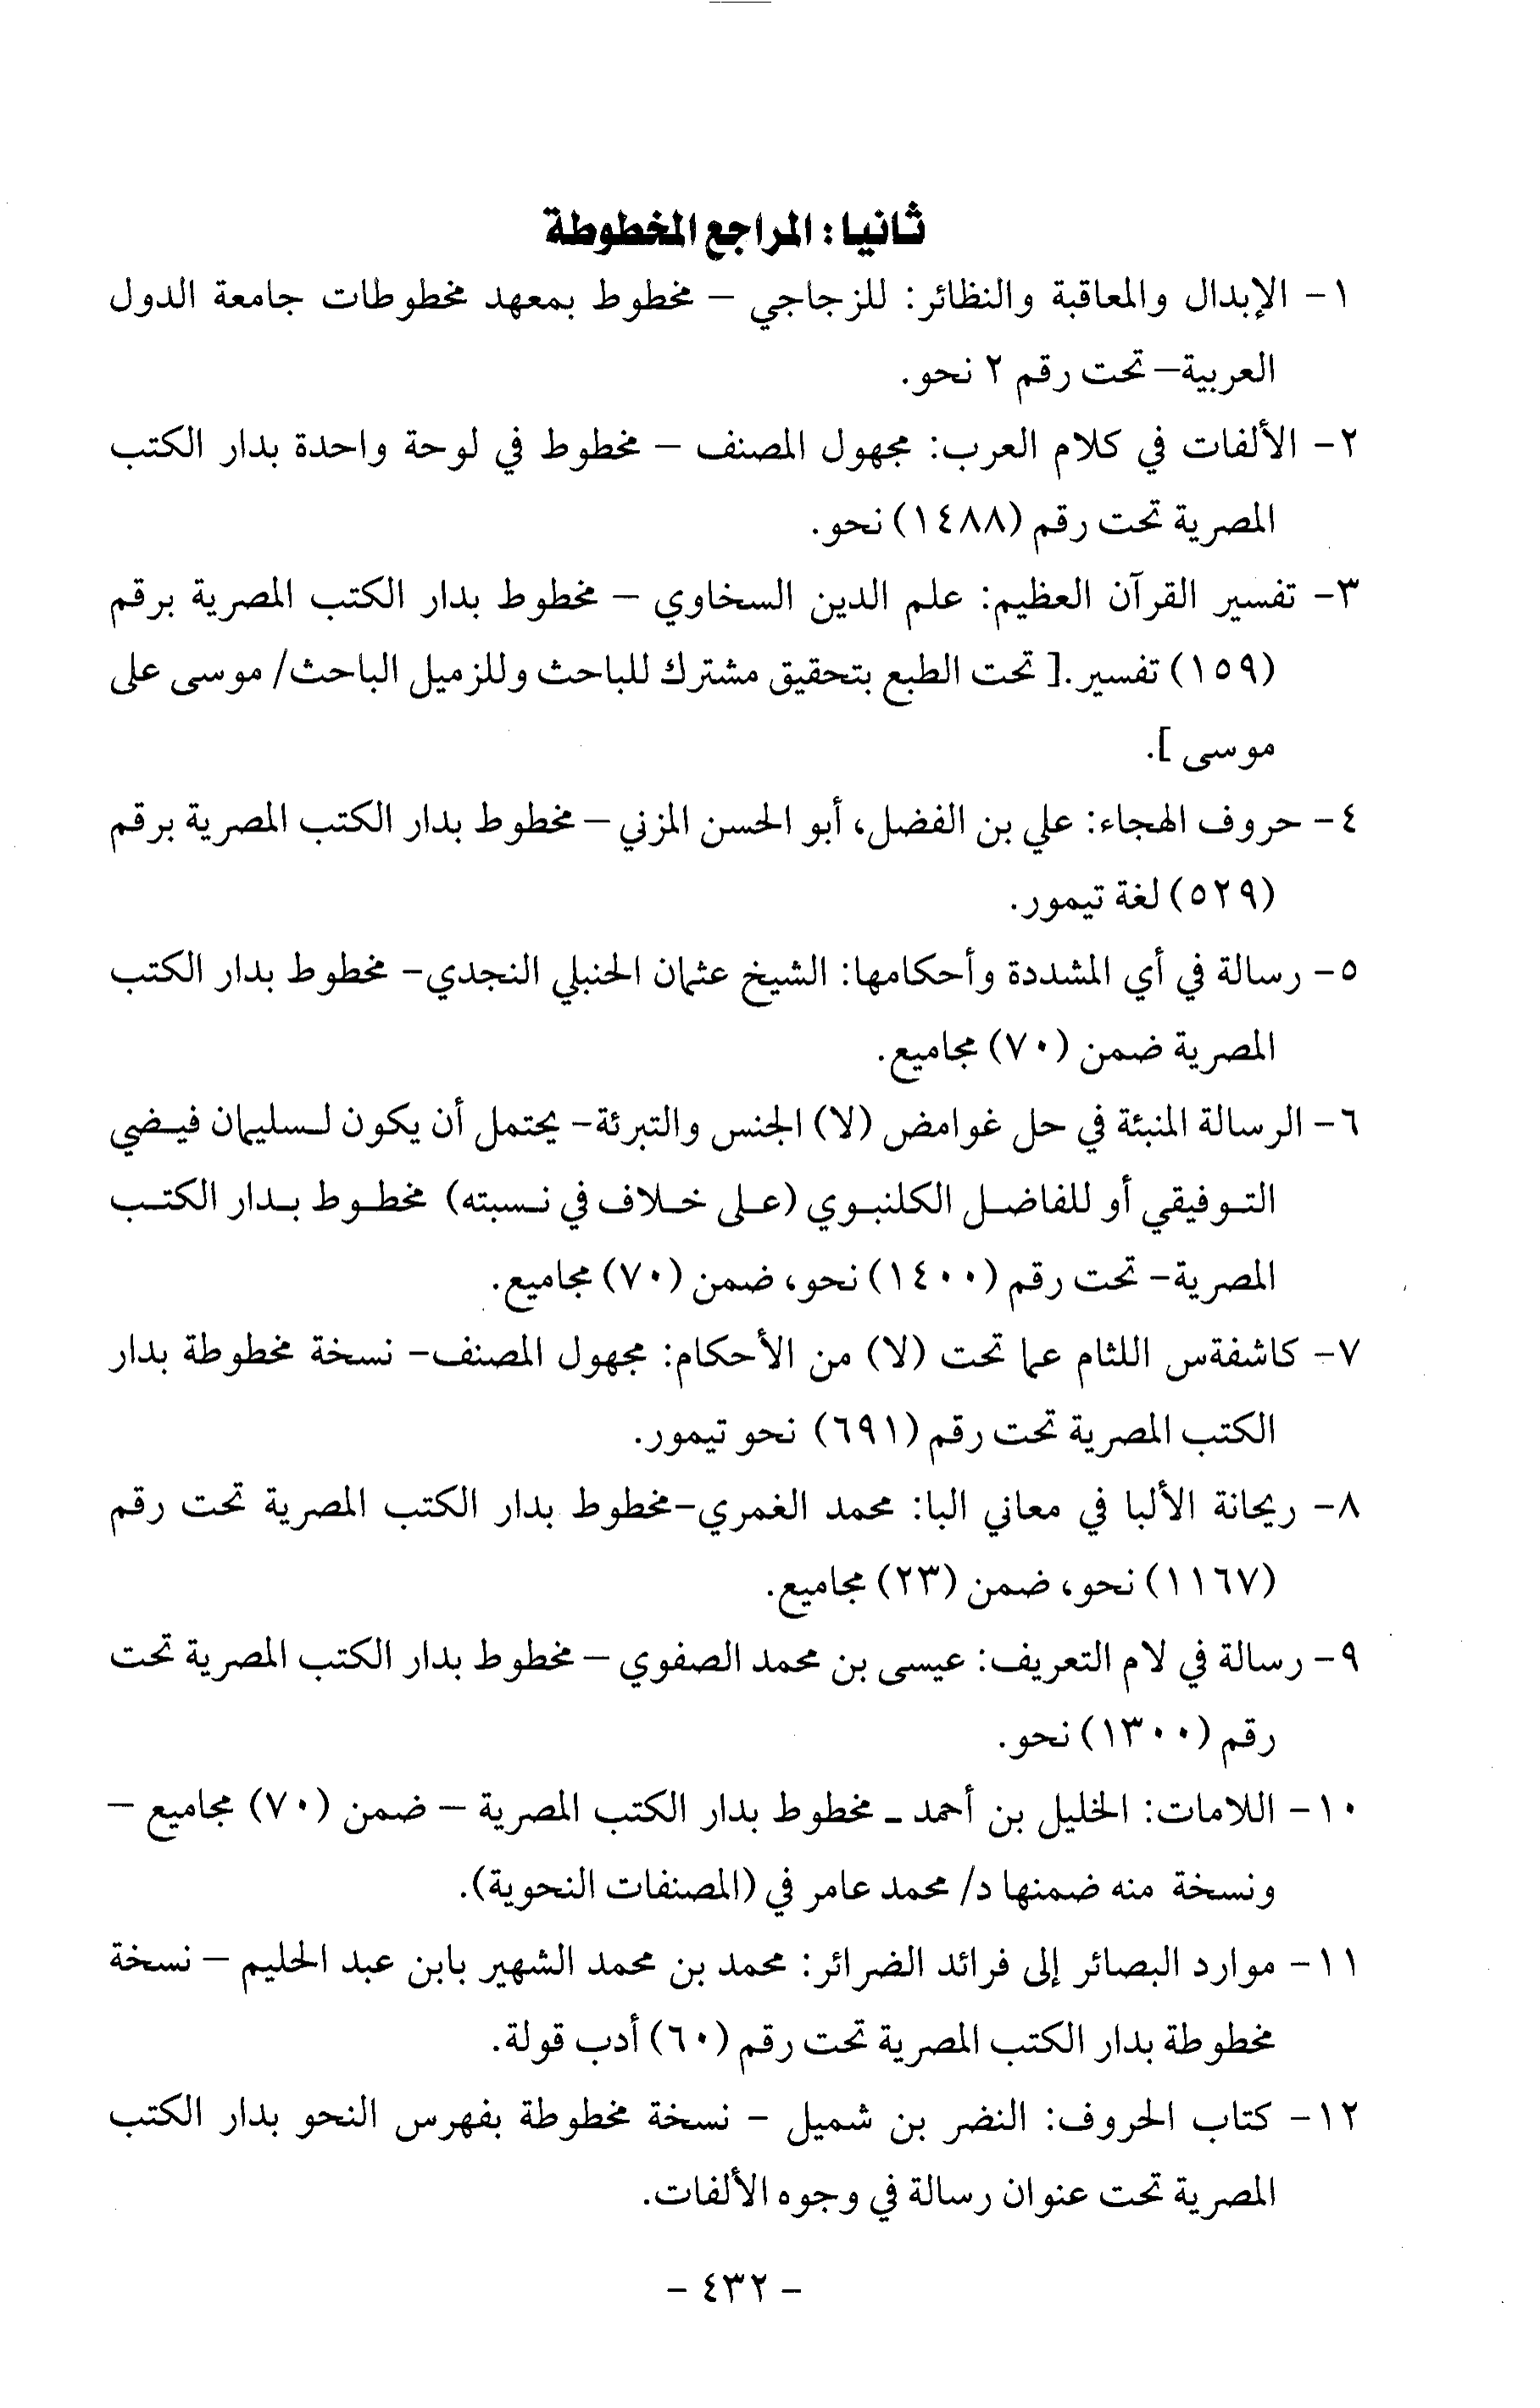 ثانيا: المراجع المخطوطة
١- الإبدال والمعاقبة والنظائر: للزجاجي – مخطوط بمعهد مخطوطات جامعة الدول
العربية– تحت رقم ٢ نحو.
٢- الألفات في كلام العرب: مجهول المصنف – مخطوط في لوحة واحدة بدار الكتب
المصرية تحت رقم (١٤٨٨) نحو.
٣- تفسير القرآن العظيم: علم الدين السخاوي – مخطوط بدار الكتب المصرية برقم
(١٥٩) تفسير.[ تحت الطبع بتحقيق مشترك للباحث وللزميل الباحث/ موسى على
موسى ].
٤- حروف الهجاء: علي بن الفضل، أبو الحسن المزني – مخطوط بدار الكتب المصرية برقم
(٥٢٩) لغة تيمور.
٥- رسالة في أي المشددة وأحكامها: الشيخ عثمان الحنبلي النجدي- مخطوط بدار الكتب
المصرية ضمن (٧٠) مجاميع.
٦- الرسالة المنبئة في حل غوامض (لا) الجنس والتبرئة- يحتمل أن يكون لسليمان فيضي
التوفيقي أو للفاضل الكلنبوي (على خلاف في نسبته) مخطوط بدار الكتب
المصرية- تحت رقم (١٤٠٠) نحو، ضمن (٧٠) مجاميع.
٧- كاشفةس اللثام عما تحت (لا) من الأحكام: مجهول المصنف- نسخة مخطوطة بدار
الكتب المصرية تحت رقم (٦٩١) نحو تيمور.
٨- ريحانة الألبا في معاني البا: محمد الغمري-مخطوط بدار الكتب المصرية تحت رقم
(١١٦٧) نحو، ضمن (٢٣) مجاميع.
٩- رسالة في لام التعريف: عيسى بن محمد الصفوي – مخطوط بدار الكتب المصرية تحت
رقم (١٣٠٠) نحو.
١٠- اللامات: الخليل بن أحمد ـ مخطوط بدار الكتب المصرية – ضمن (٧٠) مجاميع –
ونسخة منه ضمنها د/ محمد عامر في (المصنفات النحوية).
١١- موارد البصائر إلى فرائد الضرائر: محمد بن محمد الشهير بابن عبد الحليم – نسخة
مخطوطة بدار الكتب المصرية تحت رقم (٦٠) أدب قولة.
١٢- كتاب الحروف: النضر بن شميل - نسخة مخطوطة بفهرس النحو بدار الكتب
المصرية تحت عنوان رسالة في وجوه الألفات.
- ٤٣٢ -